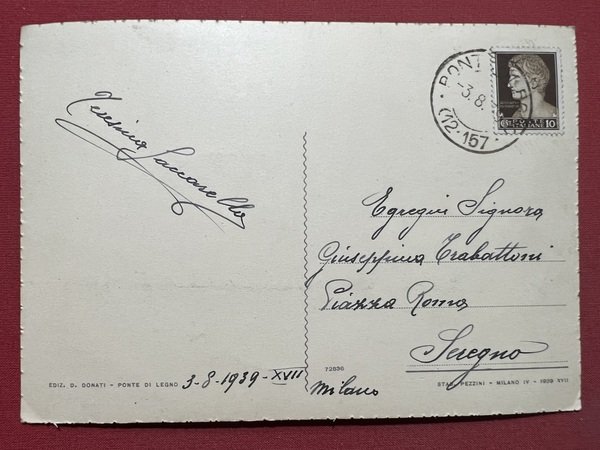 Teresina Saccarello
PONT
-3.8.
(12-157)
POSTE ITALIANE 10
Egregia Signora
Giuseppina Trabattoni
Piazza Roma
Seregno
Milano
72836
EDIZ. D. DONATI - PONTE DI LEGNO
3-8-1939-XVII
STAB. PEZZINI - MILANO IV - 1939 XVII